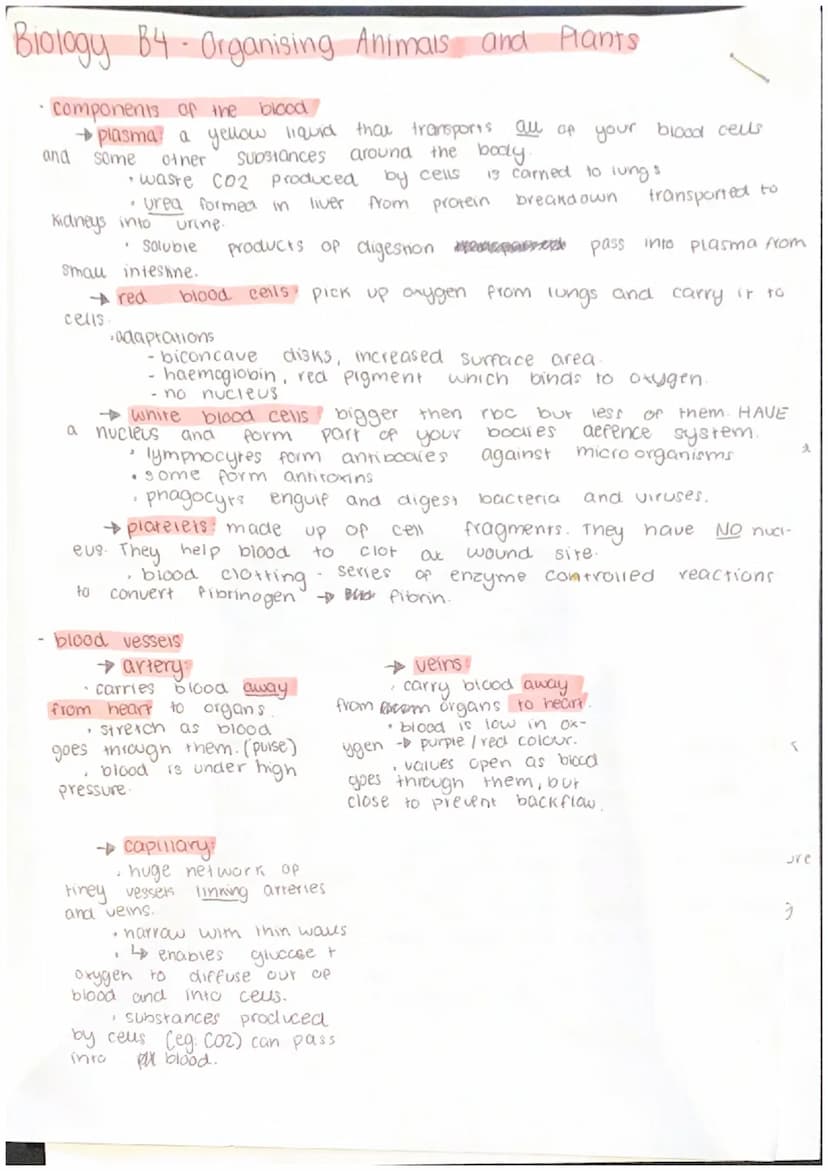 Biology B4 - Organising Animals and Plants
· components of the blood
→ plasma: a yellow liquid that transports all of your blood cells
and some other substances around the body.
· waste CO2 produced by cells is carried to lungs
· urea formed in liver from protein breakdown transported to
kidneys into urine.
· soluble products of digestion pass into plasma from
small intestine.
→ red blood cells: pick up oxygen from lungs and carry it to
cells.
· adaptations
- biconcave disks, increased surface area.
- haemoglobin, red pigment which binds to oxygen.
- no nucleus
→ white blood cells: bigger then rbc but less of them. HAVE
a nucleus and form part of your bodies defence system.
· lymphocytes form antibodies against micro organisms
· some form antitoxins
· phagocyts engulf and digest bacteria and viruses.
→ platelets: made up of cell fragments. They have NO nucl-
eus. They help blood to clot at wound site.
· blood clotting - series of enzyme controlled reactions
to convert fibrinogen → fibrin.
- blood vessels
→ artery:
· carries blood away
from heart to organs.
· stretch as blood
goes through them. (pulse)
· blood is under high
pressure.
→ veins:
· carry blood away
from organs to heart.
· blood is low in ox-
ygen → purple/red colour.
· values open as blood
goes through them, but
close to prevent backflow.
→ capillary:
· huge network of
tiney vessels linning arteries
and veins.
· narrow with thin walls
· ↳ enables glucose +
oxygen to diffuse out of
blood and into cells.
· substances produced
by cells (eg. CO2) can pass
into blood.
ure